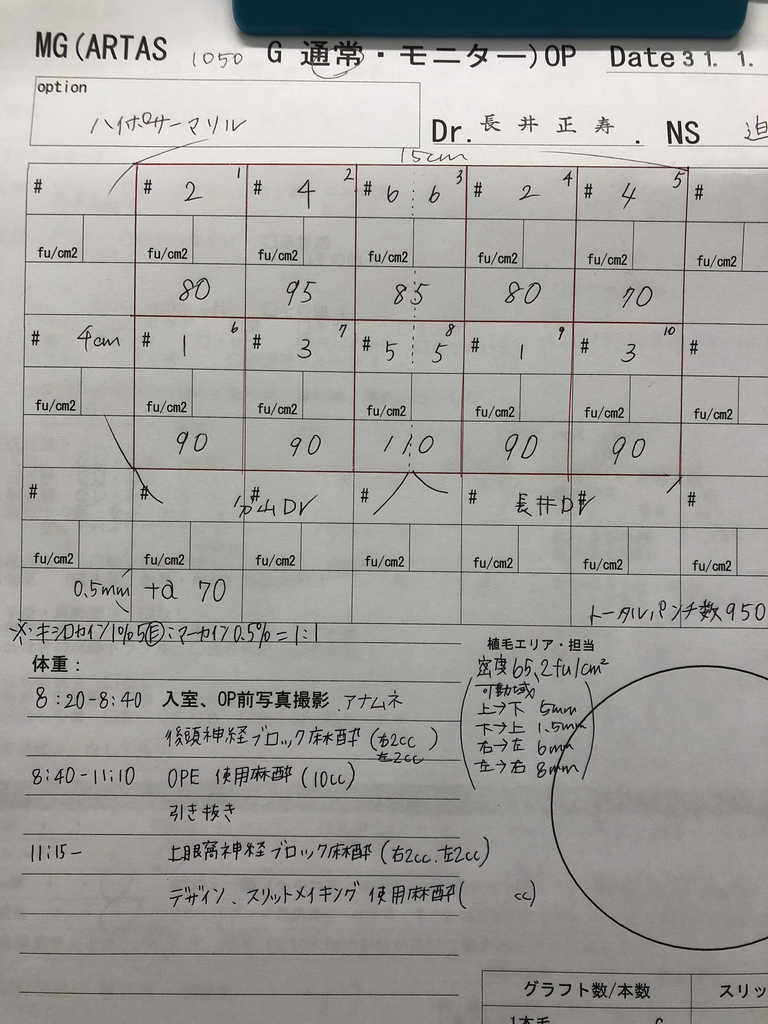 MG(ARTAS 1050 G 通常・モニター)OP Date 31. 1.
option
ハイポサーマリル
Dr. 長井正寿. NS 迫
15cm
# # 2 1 # 4 2 # 6 6 3 # 2 4 # 4 5 #
fu/cm2 fu/cm2 fu/cm2 fu/cm2 fu/cm2 fu/cm2 fu/cm2
80 95 85 80 70
# 4cm # 1 6 # 3 7 # 5 5 8 # 1 9 # 3 10 #
fu/cm2 fu/cm2 fu/cm2 fu/cm2 fu/cm2 fu/cm2 fu/cm2
90 90 110 90 90
# # # # # # #
DV 長井DV
fu/cm2 fu/cm2 fu/cm2 fu/cm2 fu/cm2 fu/cm2 fu/cm2
0.5mm +α 70 トータルパンチ数950
※・キシロカイン1%5Ⓔ:マーカイン0.5%=1:1
植毛エリア・担当
体重: 密度65.2fu/cm²
可動域
8:20-8:40 入室、OP前写真撮影.アナムネ 上→下 5mm
下→上 1.5mm
後頭神経ブロック麻酔(右2cc 左2cc) 右→左 6mm
8:40-11:10 OPE 使用麻酔(10cc) 左→右 8mm
引き抜き
11:15- 上眼窩神経ブロック麻酔(右2cc.左2cc)
デザイン、スリットメイキング 使用麻酔( cc)
グラフト数/本数 スリッ
1本毛